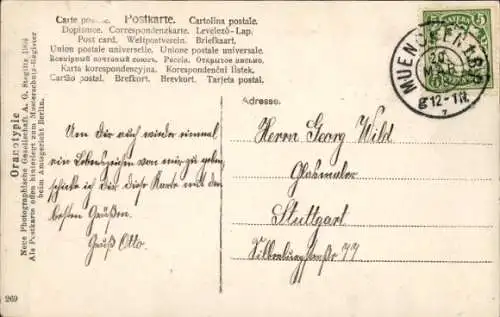 Carte postale. Postkarte. Cartolina postale.
Dopisnice. Correspondenzkarte. Levelező-Lap.
Post card. Weltpostverein. Briefkaart.
Union postale universelle. Unione postale universale.
Всемірный почтовый союзъ. Россія. Открытое письмо.
Karta korespondencyjna. Korespondenční lístek.
Cartão postal. Brefkort. Brevkort. Tarjeta postal.
BAYERN
MUENCHEN
20
12-1N.
7
Adresse.
Um Dir auch wieder einmal
ein Lebenszeichen von mir zu geben
schicke ich Dir diese Karte mit den
besten Grüßen.
Gruß Otto.
Herrn Georg Wild
Glasmaler
Stuttgart
Silberburgstraße 77
Oranotypie
Neue Photographische Gesellschaft A. G. Steglitz 1904
Als Postkarte offen hinterlegt zum Musterschutz-Register
beim Amtsgericht Berlin.
269